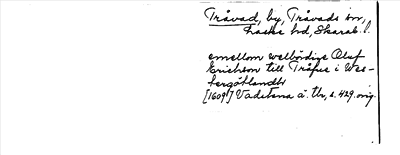 Tråvad, by, Tråvads sn,
Laske hd, Skarab. l.
emellom welbördige Oluf
Erichson till Tråfue i Wes-
tergötlandh
[1609] Vadstena ä. tb, s. 429. orig.